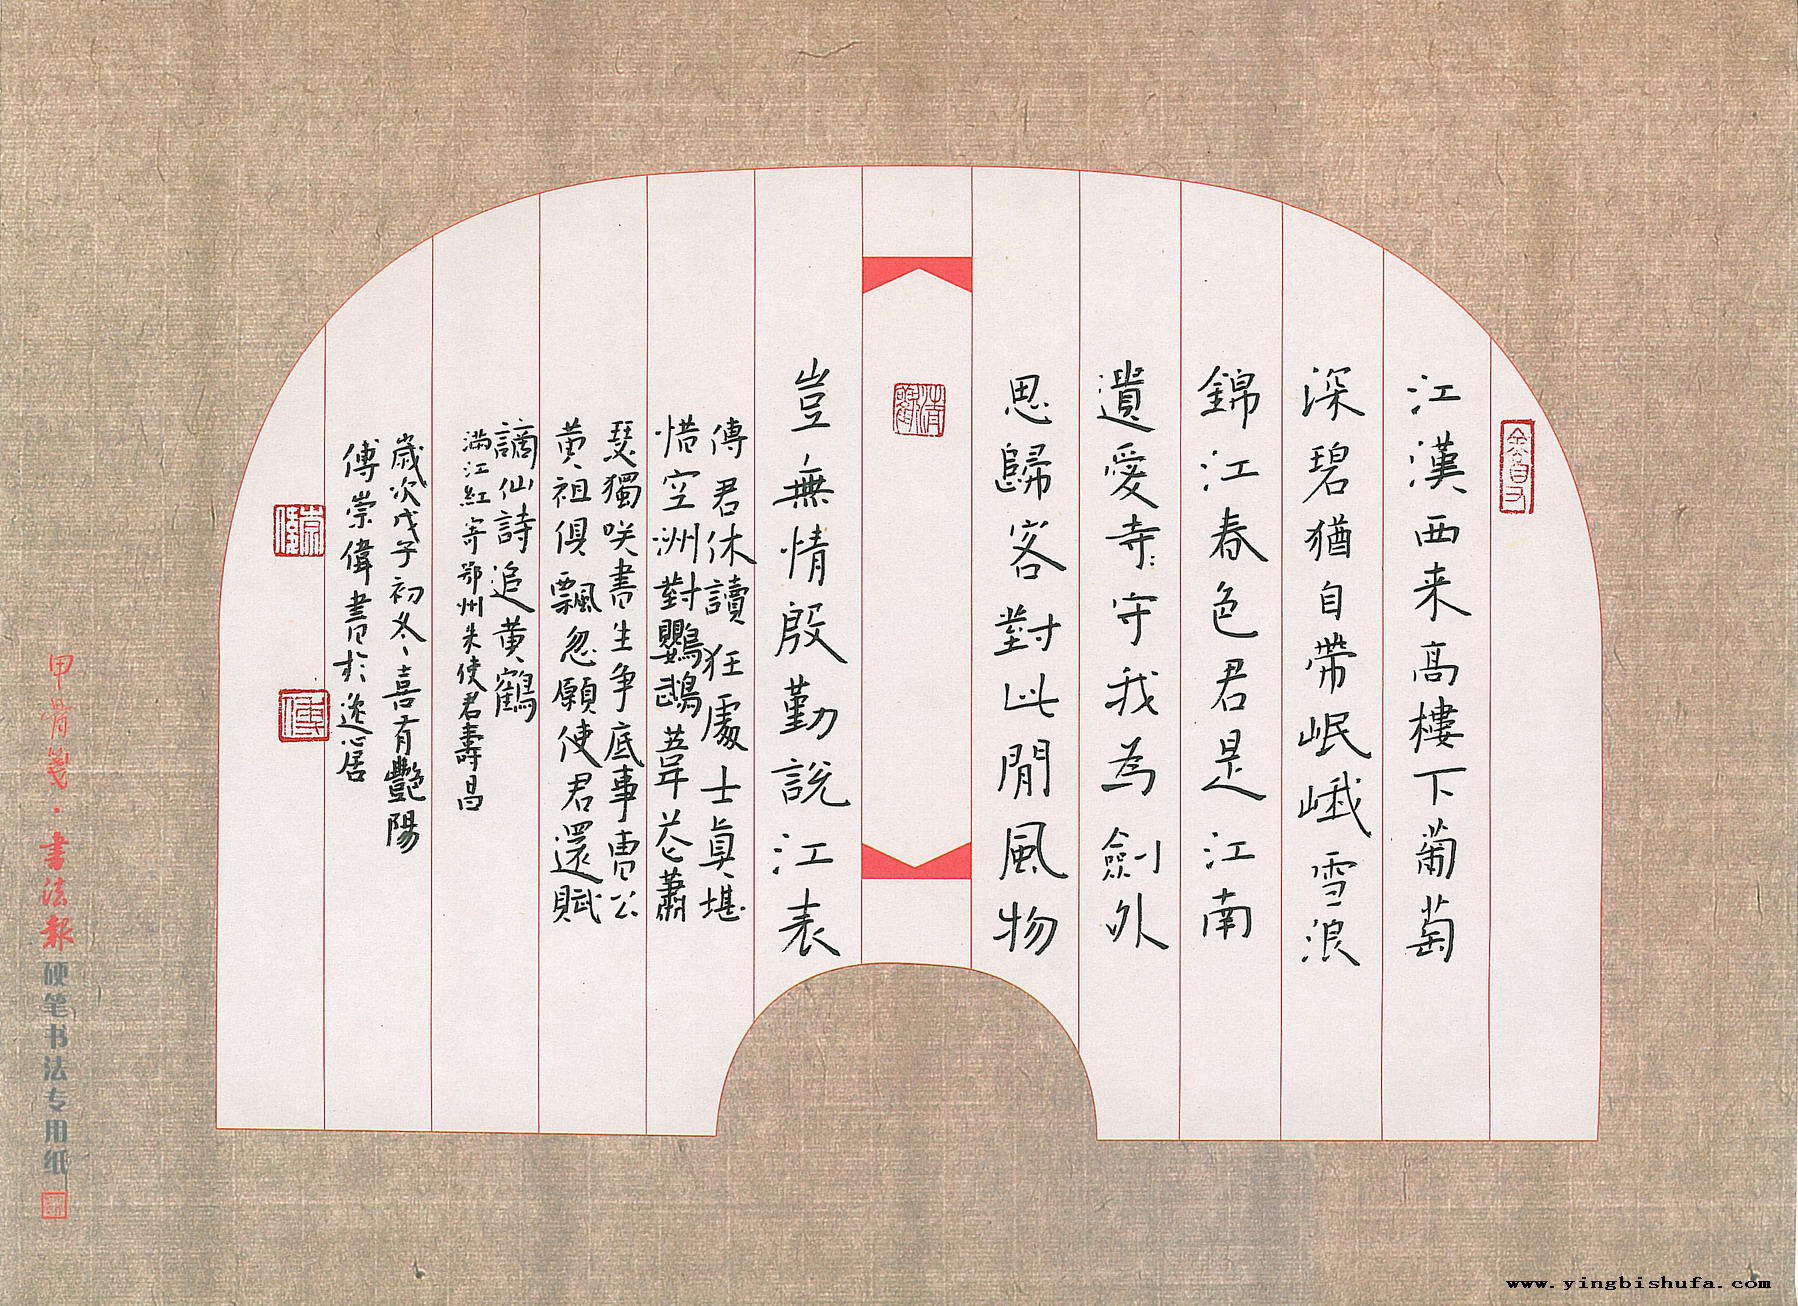 江漢西来高樓下葡萄
深碧猶自帶岷峨雪浪
錦江春色君是江南
遺愛寺守我為劍外
思歸客對此閒風物
豈無情殷勤說江表
傳君休讀狂處士真堪
惜空洲對鸚鵡葦花蕭
瑟獨咲書生争底事曹公
黄祖俱飄忽願使君還賦
謫仙詩追黄鶴
滿江紅寄鄂州朱使君壽昌
歲次戊子初冬喜有豔陽
傅崇偉書於逸心居
崇偉
傅
甲骨箋·書法報硬笔书法专用纸
www.yingbishufa.com